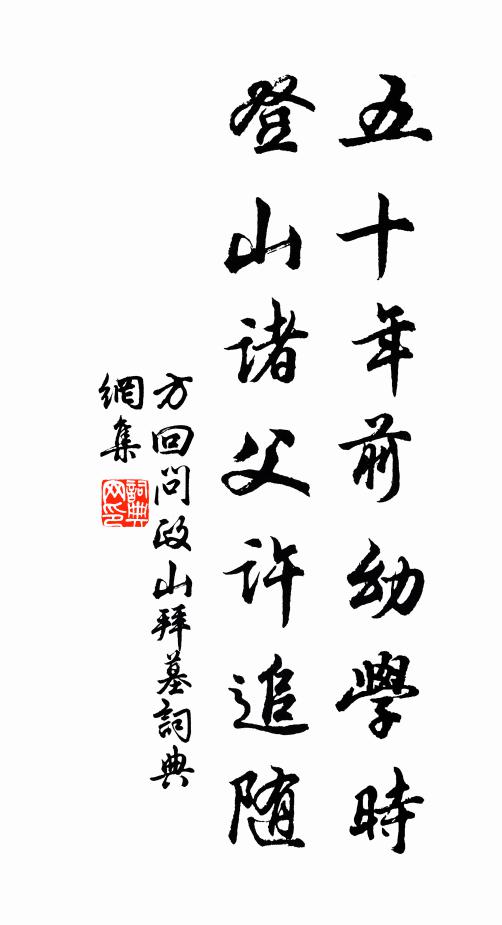 五十年前幼學時
登山诸父许追随
方回問政山拜墓詞典
網集
詞典网印